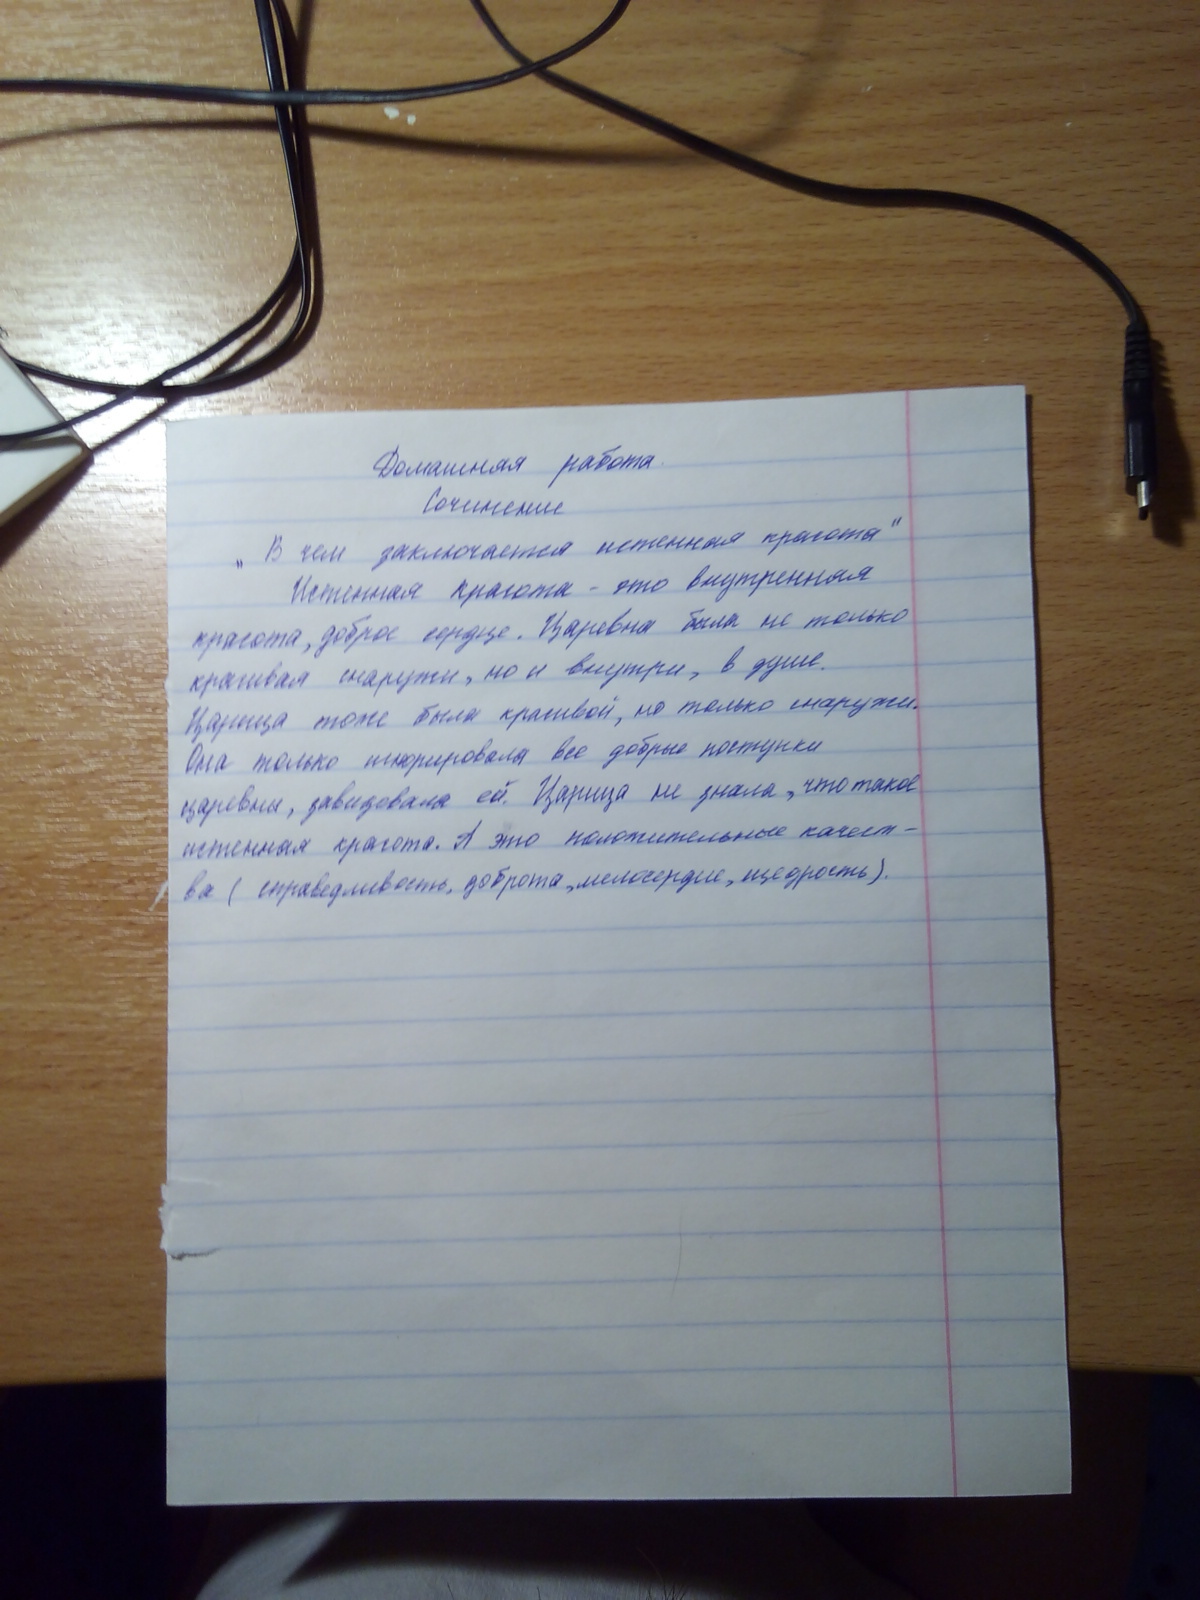 Домашняя работа.
Сочинение
„В чем заключается истенная красота"
Истенная красота - это внутренная
красота, доброе сердце. Царевна была не только
красивая снаружи, но и внутри, в душе.
Царица тоже была красивой, но только снаружи.
Она только игнорировала все добрые поступки
царевны, завидовала ей. Царица не знала, что такое
истенная красота. А это положительные качест-
ва ( справедливость, доброта, мелосердие, щедрость).